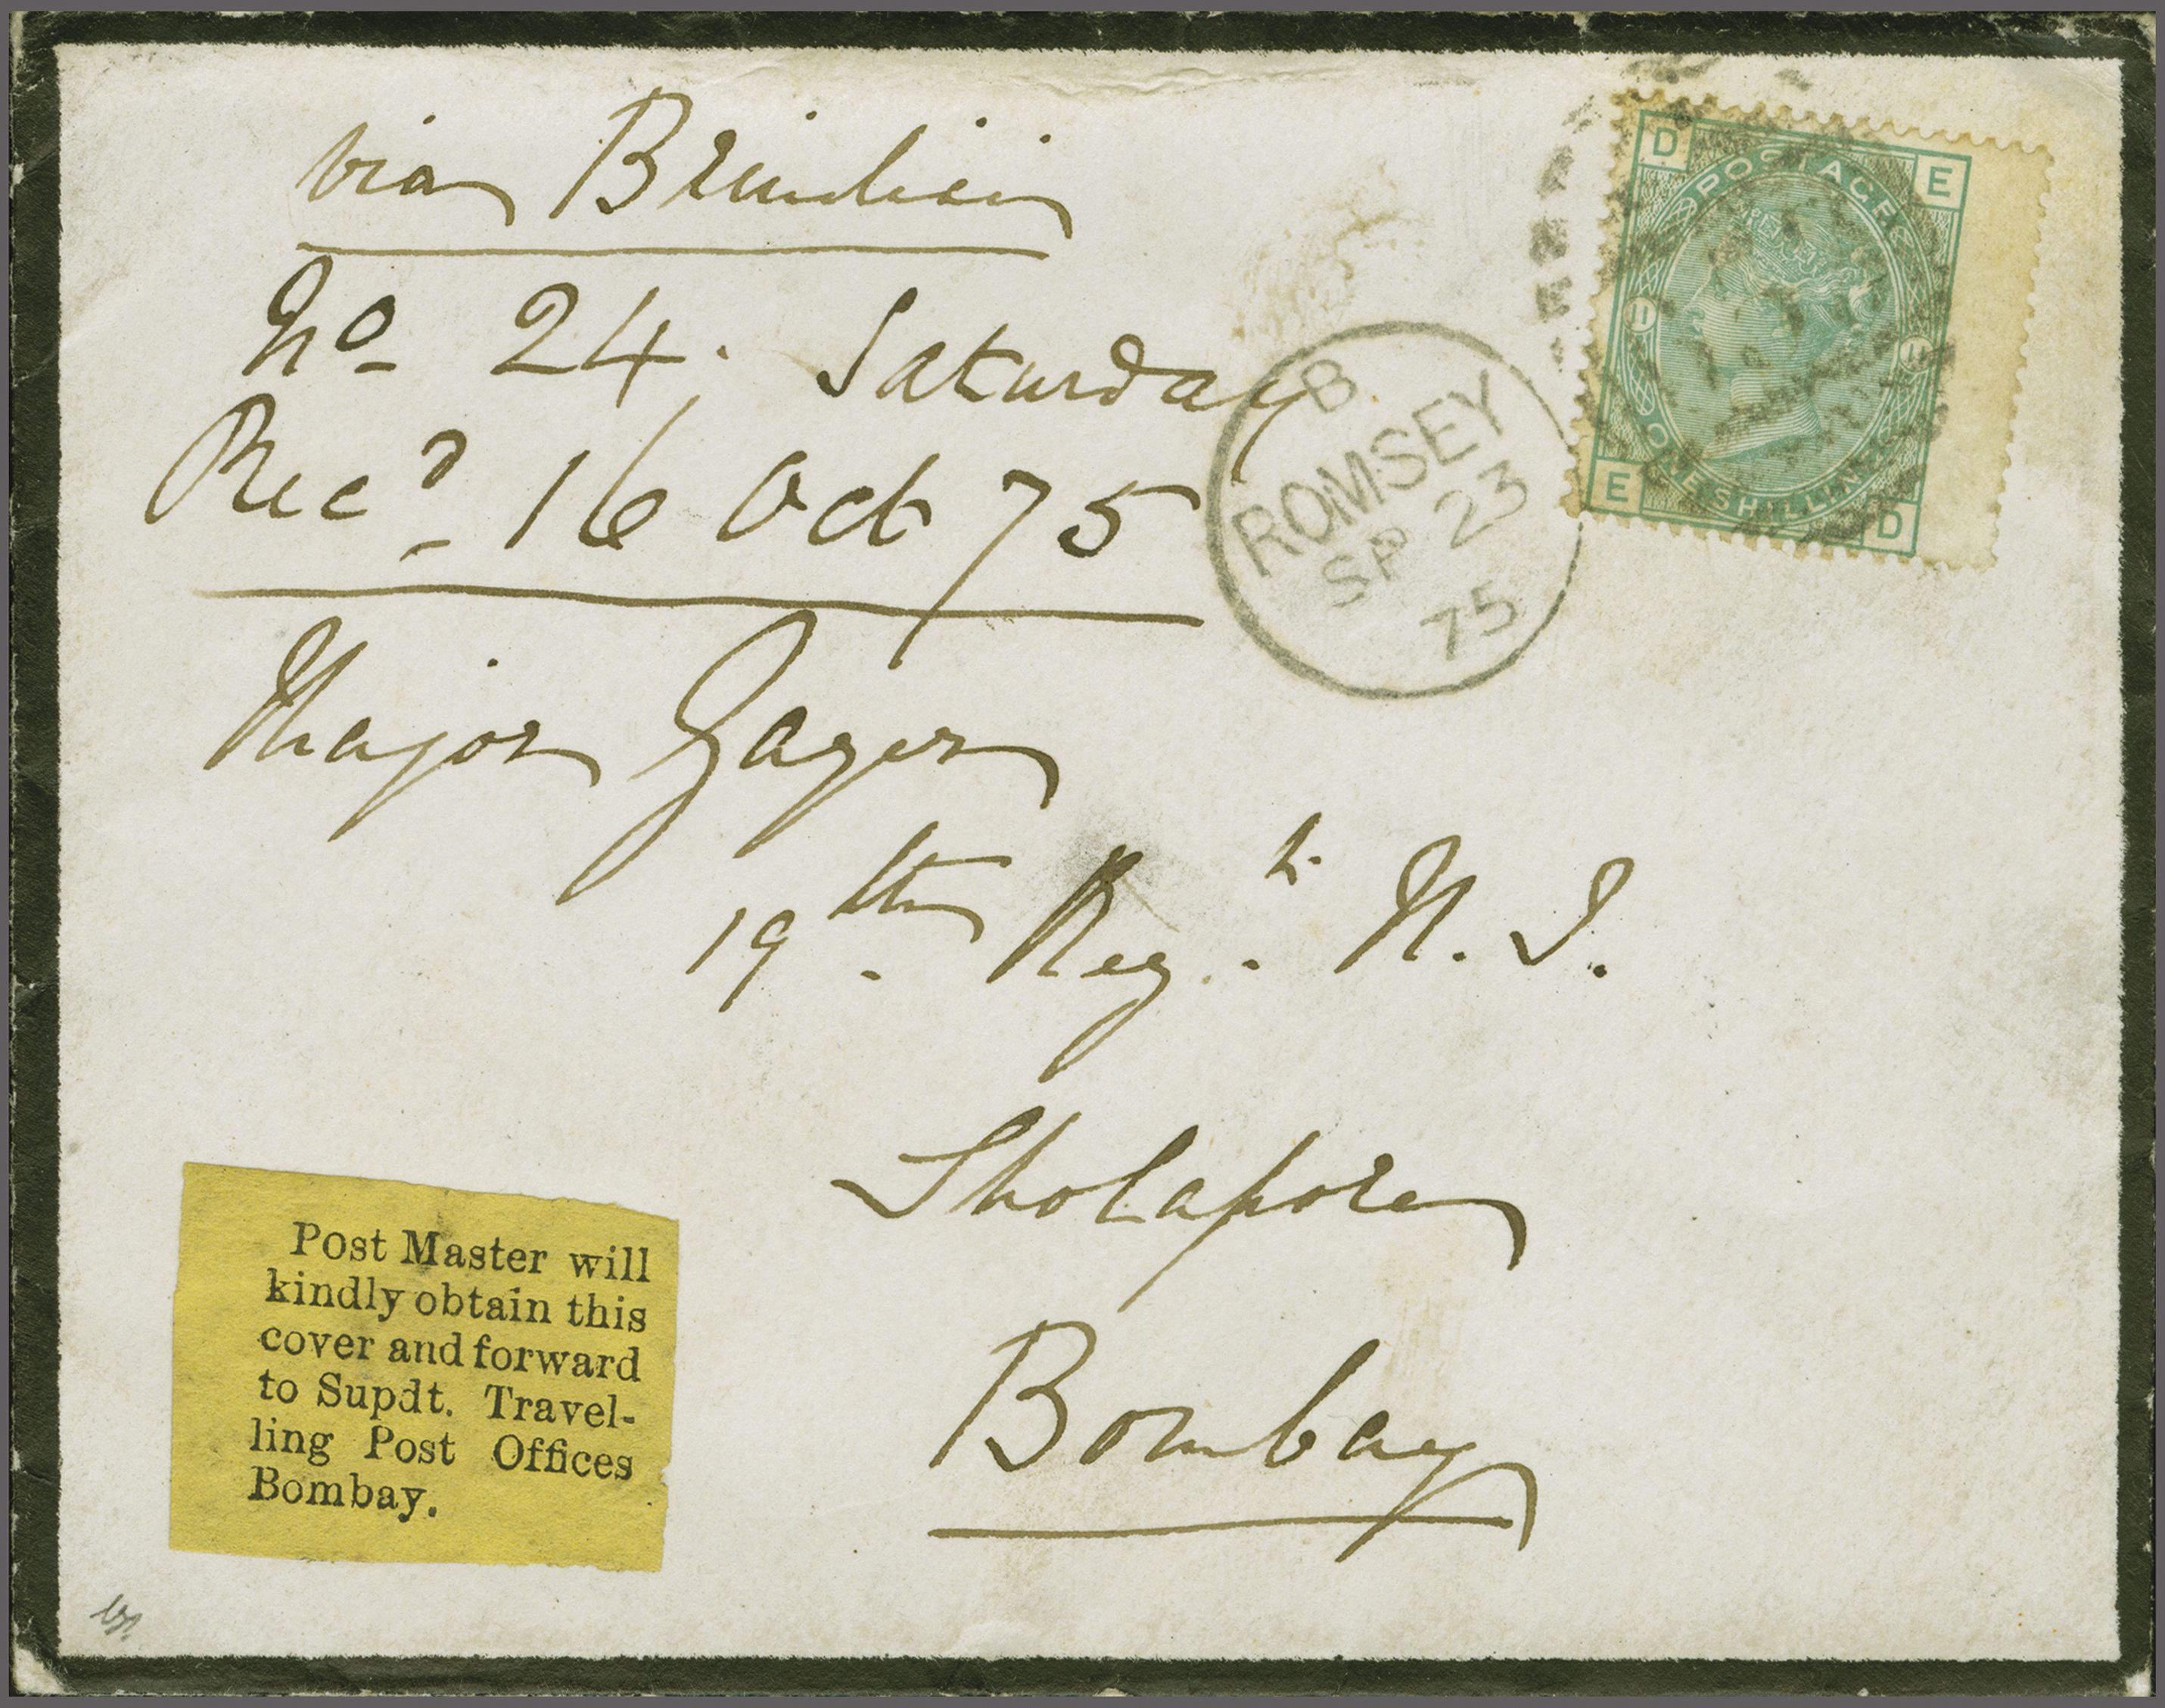 via Brindisi
No 24. Saturday
Recd 16 Oct 75
Major Gager
19th Regt. N. I.
Sholapore
Bombay
B
ROMSEY
SP 23
75
D E
POSTAGE
11 11
ONE SHILLING
E D
Post Master will
kindly obtain this
cover and forward
to Supdt. Travel-
ling Post Offices
Bombay.